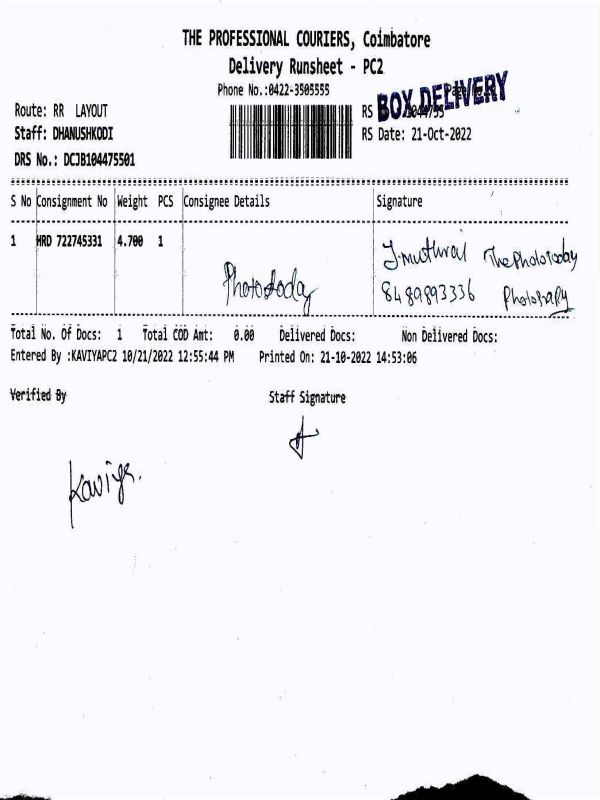 THE PROFESSIONAL COURIERS, Coimbatore
Delivery Runsheet - PC2
Phone No.:0422-3505555
BOX DELIVERY
Route: RR LAYOUT
RS
Staff: DHANUSHKODI
RS Date: 21-Oct-2022
DRS No.: DCJB104475501
S No Consignment No Weight PCS Consignee Details Signature
1 HRD 722745331 4.700 1
Phototoday
8489893336
Total No. Of Docs: 1 Total COD Amt: 0.00 Delivered Docs: Non Delivered Docs:
Entered By :KAVIYAPC2 10/21/2022 12:55:44 PM Printed On: 21-10-2022 14:53:06
Verified By Staff Signature
Kaviya.